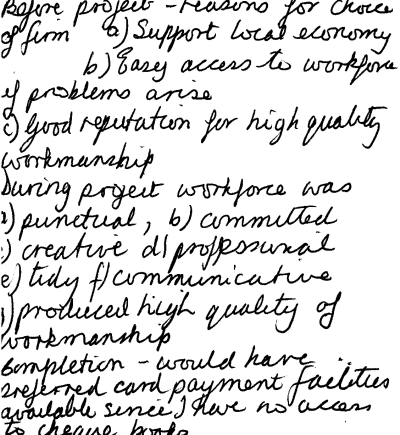 Before project - reasons for choice
of firm a) Support local economy
b) Easy access to workforce
if problems arise
c) Good reputation for high quality
workmanship
During project workforce was
a) punctual, b) committed
c) creative d) professional
e) tidy f) communicative
g) produced high quality of
workmanship
Completion - would have
preferred card payment facilities
available since I have no access
to cheque books